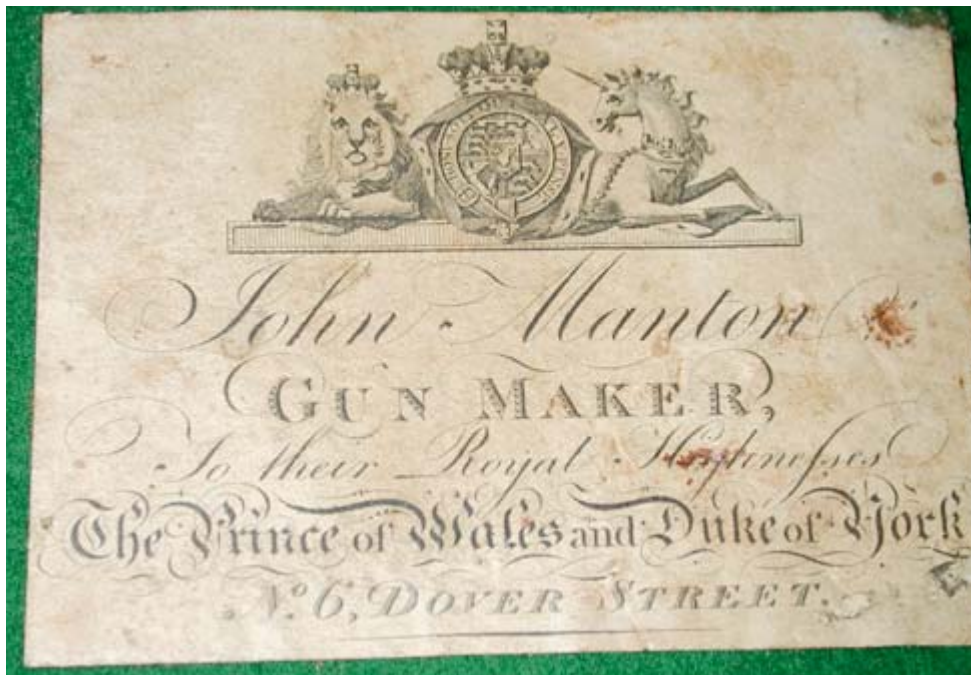 John Manton
GUN MAKER,
To their Royal Highneſses
The Prince of Wales and Duke of York
No. 6, DOVER STREET.